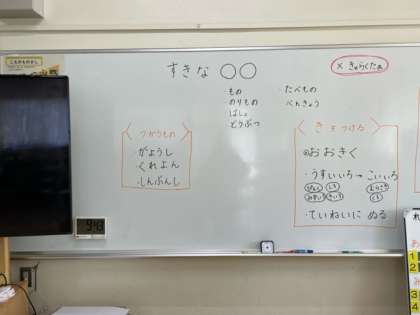 すきな 〇〇
× きゃらくたあ
もの
のりもの
ばしょ
どうぶつ
・たべもの
べんきょう
つかうもの
・がようし
・くれよん
・しんぶんし
きをつける
◎おおきく
・うすいいろ→こいいろ
・ていねいに ぬる